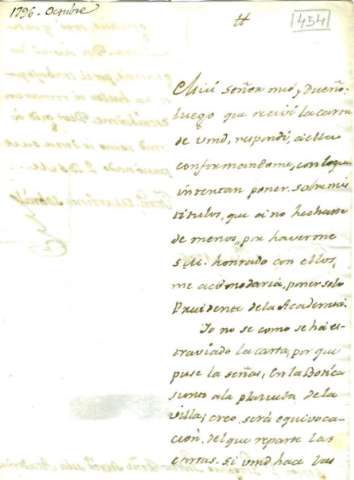 1796. Octubre
#
434
Mui señor mio, y Dueño:
luego que recivi la carta
de vmd, respondi, a ella
conformandome, con loque
intentan poner, sobre mis
titulos, que si no hechasen
de menos, por haverme
S.M. honrado con ellos,
me acomodaria, poner solo
Presidente dela Academia.
Yo no se como se há es-
traviado la carta, por que
puse la señas, En la Botica
junto a la plazuela de la
villa; creo, será equivoca-
cion, del que reparte las
cartas. Si vmd hace las